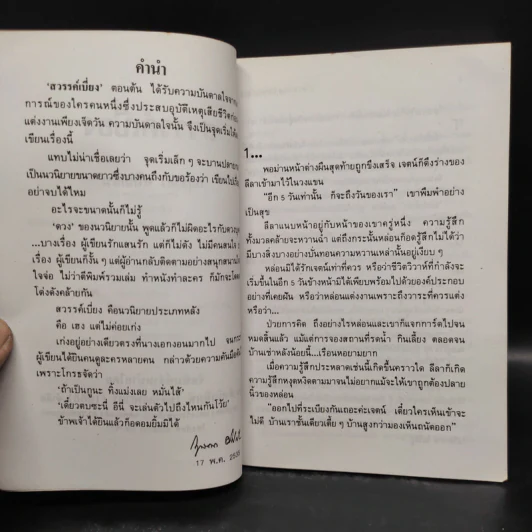 คำนำ
'สวรรค์เบี่ยง' ตอนต้น ได้รับความบันดาลใจจาก
การณ์ของใครคนหนึ่งซึ่งประสบอุบัติเหตุเสียชีวิตก่อน
แต่งงานเพียงเจ็ดวัน ความบันดาลใจนั้น จึงเป็นจุดเริ่มให้
เขียนเรื่องนี้
แทบไม่น่าเชื่อเลยว่า จุดเริ่มเล็กๆ จะบานปลาย
เป็นนวนิยายขนาดยาวซึ่งบางคนถึงกับขอร้องว่า เขียนใน
อย่าจบได้ไหม
อะไรจะขนาดนั้นก็ไม่รู้
'ดวง' ของนวนิยายนั้น พูดแล้วก็ไม่ผิดอะไรกับดวง
...บางเรื่อง ผู้เขียนรักแสนรัก แต่ก็ไม่ดัง ไม่มีคนสนใจ
เรื่อง ผู้เขียนก็งั้นๆ แต่ผู้อ่านกลับติดตามอย่างสนุกสนาน
ใจจ่อ ไม่ว่าตีพิมพ์รวมเล่ม ทำหนังทำละคร ก็มักจะ
โด่งดังคล้ายกัน
สวรรค์เบี่ยง คือนวนิยายประเภทหลัง
คือ เฮง แต่ไม่ค่อยเก่ง
เก่งอยู่อย่างเดียวตรงที่นางเอกงอนมากไป จน
ผู้เขียนได้ยินคนดูละครหลายคน กล่าวด้วยความ
เพราะโกรธจัดว่า
"ถ้าเป็นกูนะ ทิ้งแม่งเลย หมั่นไส้"
"เดี๋ยวตบซะนี่ อีนี่ จะเล่นตัวไปถึงไหนกันโว้ย"
ข้าพเจ้าได้ยินแล้วก็อดอมยิ้มมิได้
17 พ.ค.
1...
พอม่านหน้าต่างผืนสุดท้ายถูกขึงเสร็จ เจตน์ก็ดึงร่างของ
ลีลาเข้ามาไว้ในวงแขน
"อีก 5 วันเท่านั้น ก็จะถึงวันของเรา" เขาพึมพำอย่าง
เป็นสุข
ลีลาแนบหน้าอยู่กับหน้าของเขาครู่หนึ่ง ความรู้สึก
ทั้งมวลคล้ายจะหวานฉ่ำ แต่ถึงกระนั้นหล่อนก็อดรู้สึกไม่ได้ว่า
มีบางสิ่งบางอย่างบั่นทอนความหวานเหล่านั้นอยู่เงียบๆ
หล่อนมิได้รักเจตน์เท่าที่ควร หรือว่าชีวิตวิวาห์ที่กำลังจะ
เริ่มขึ้นในอีก 5 วันข้างหน้ามิได้เพียบพร้อมไปด้วยองค์ประกอบ
อย่างที่เคยฝัน หรือว่าหล่อนแต่งงานเพราะถึงวาระที่ควรแต่ง
หรือว่า...
ป่วยการคิด ถึงอย่างไรหล่อนและเขาก็แจกการ์ดไปจน
หมดสิ้นแล้ว แม้แต่การจองสถานที่รดน้ำ กินเลี้ยง ตลอดจน
บ้านเช่าหลังน้อยนี้...เรือนหอยามยาก
เมื่อความรู้สึกประหลาดเช่นนี้เกิดขึ้นคราวใด ลีลาก็เกิด
ความรู้สึกหงุดหงิดตามมาจนไม่อยากแม้จะให้เขาถูกต้องปลาย
นิ้วของหล่อน
"ออกไปที่ระเบียงกันเถอะค่ะเจตน์ เดี๋ยวใครเห็นเข้าจะ
ไม่ดี บ้านเราชั้นเดียวเตี้ยๆ บ้านสูงกว่ามองเห็นถนัดออก"